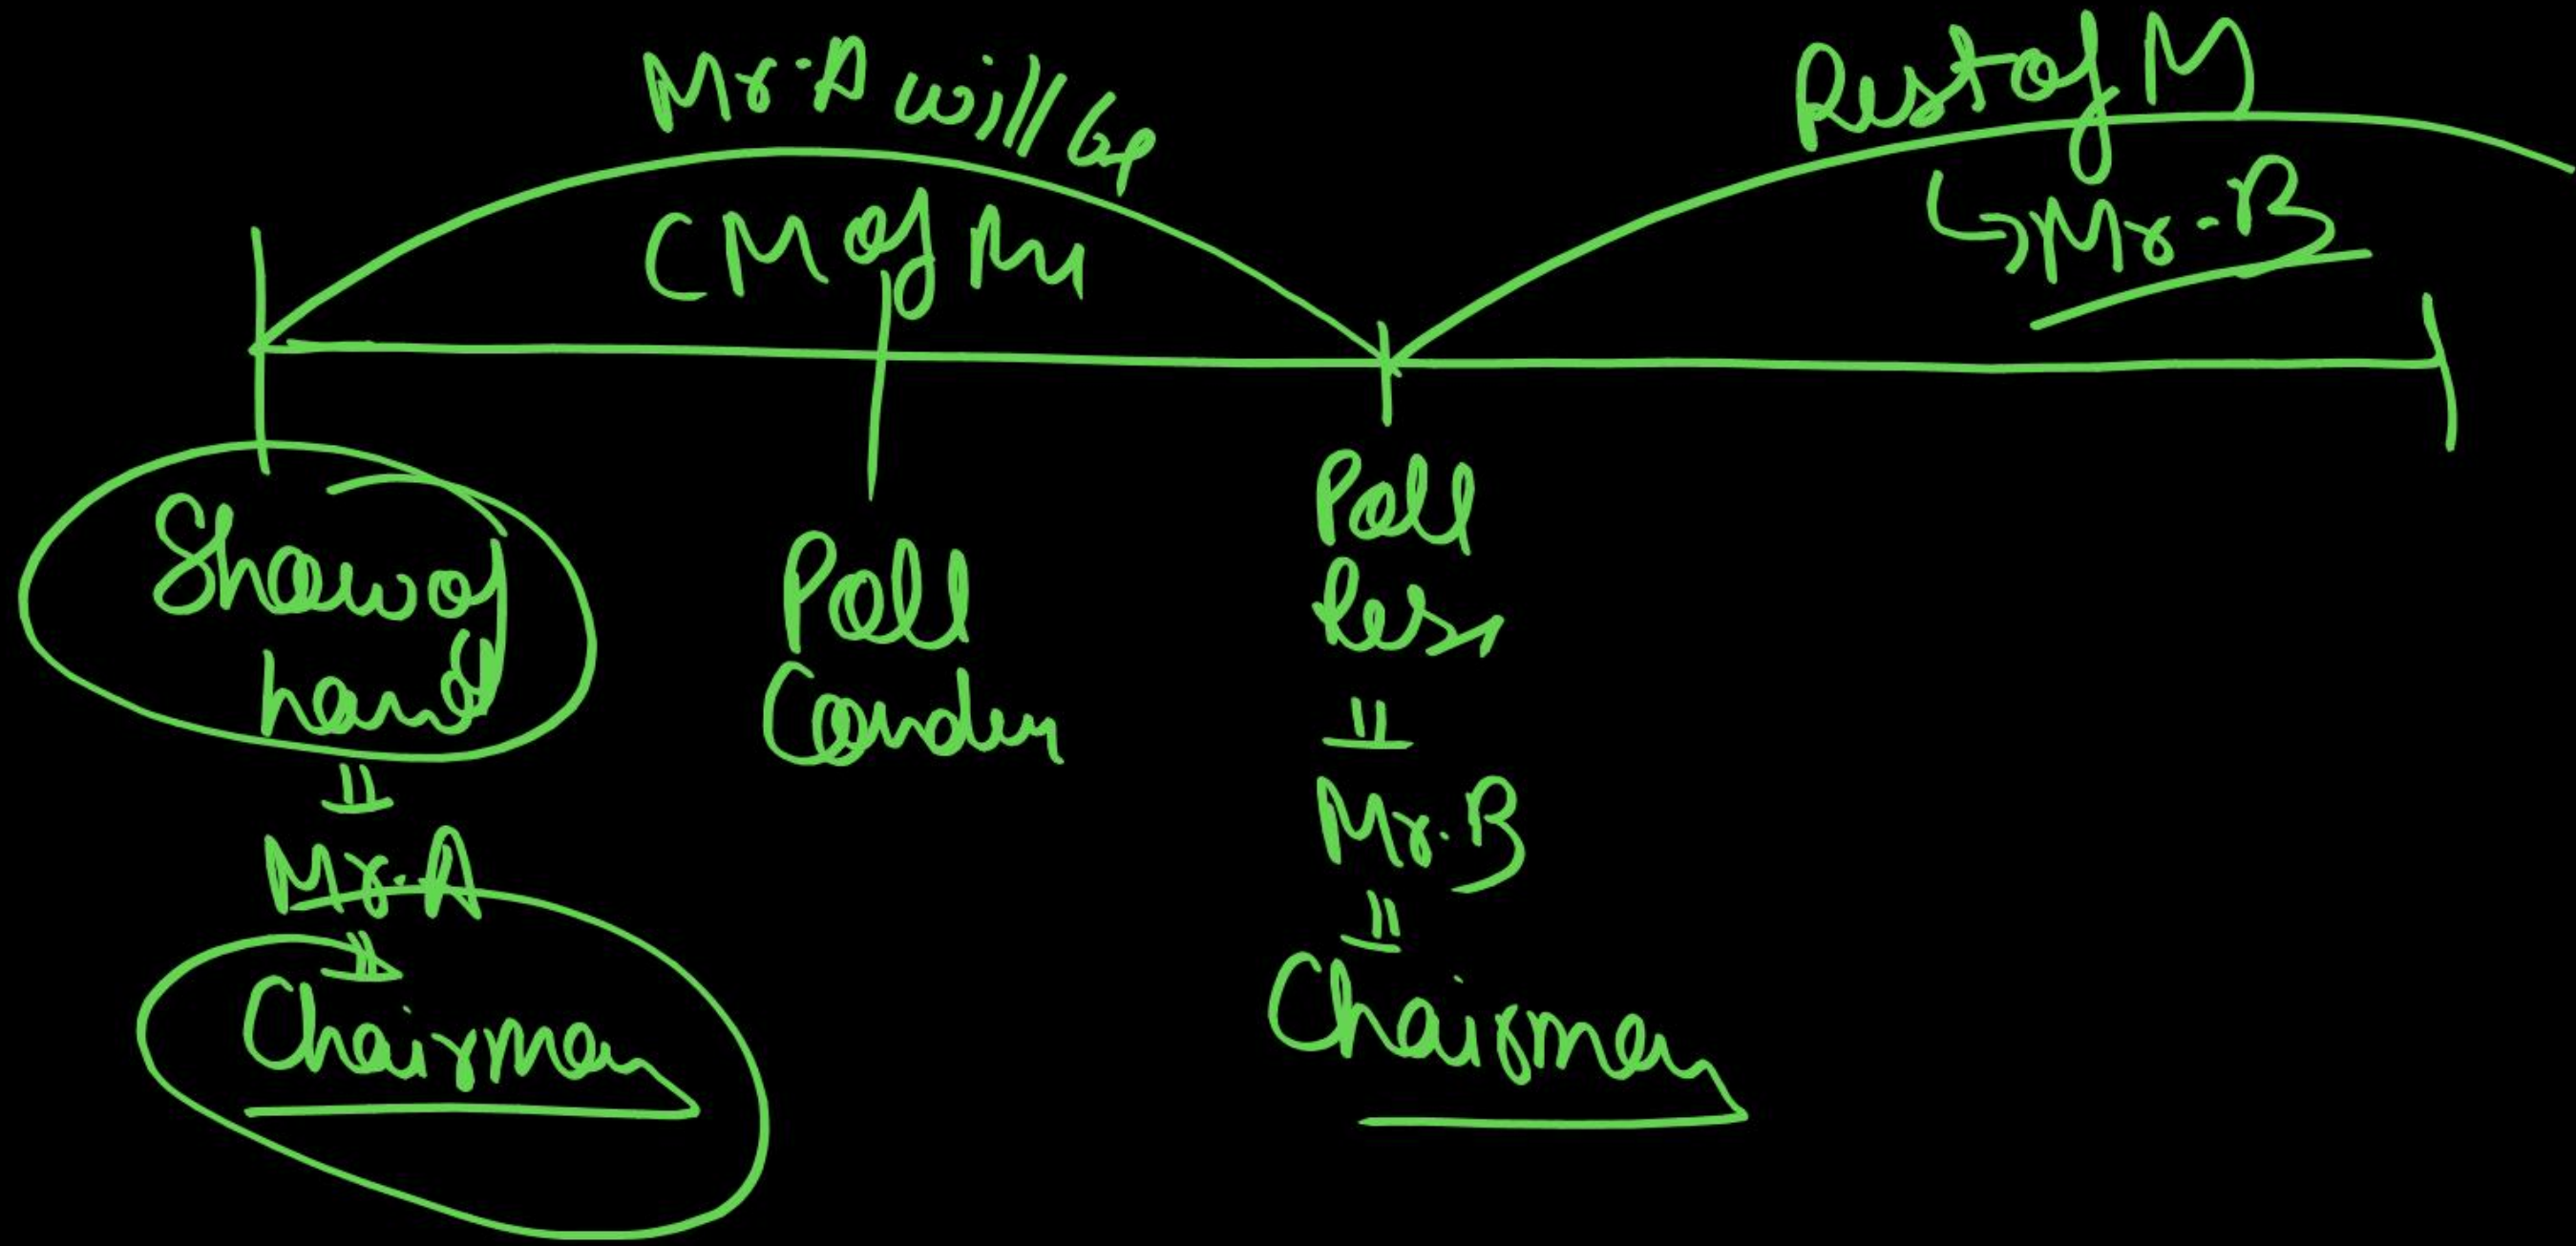 Mr. A will be
CM of M
Rest of M
↳ Mr. B
Show of
hand
Mr. A
Chairman
Poll
Poll
Mr. B
Chairman